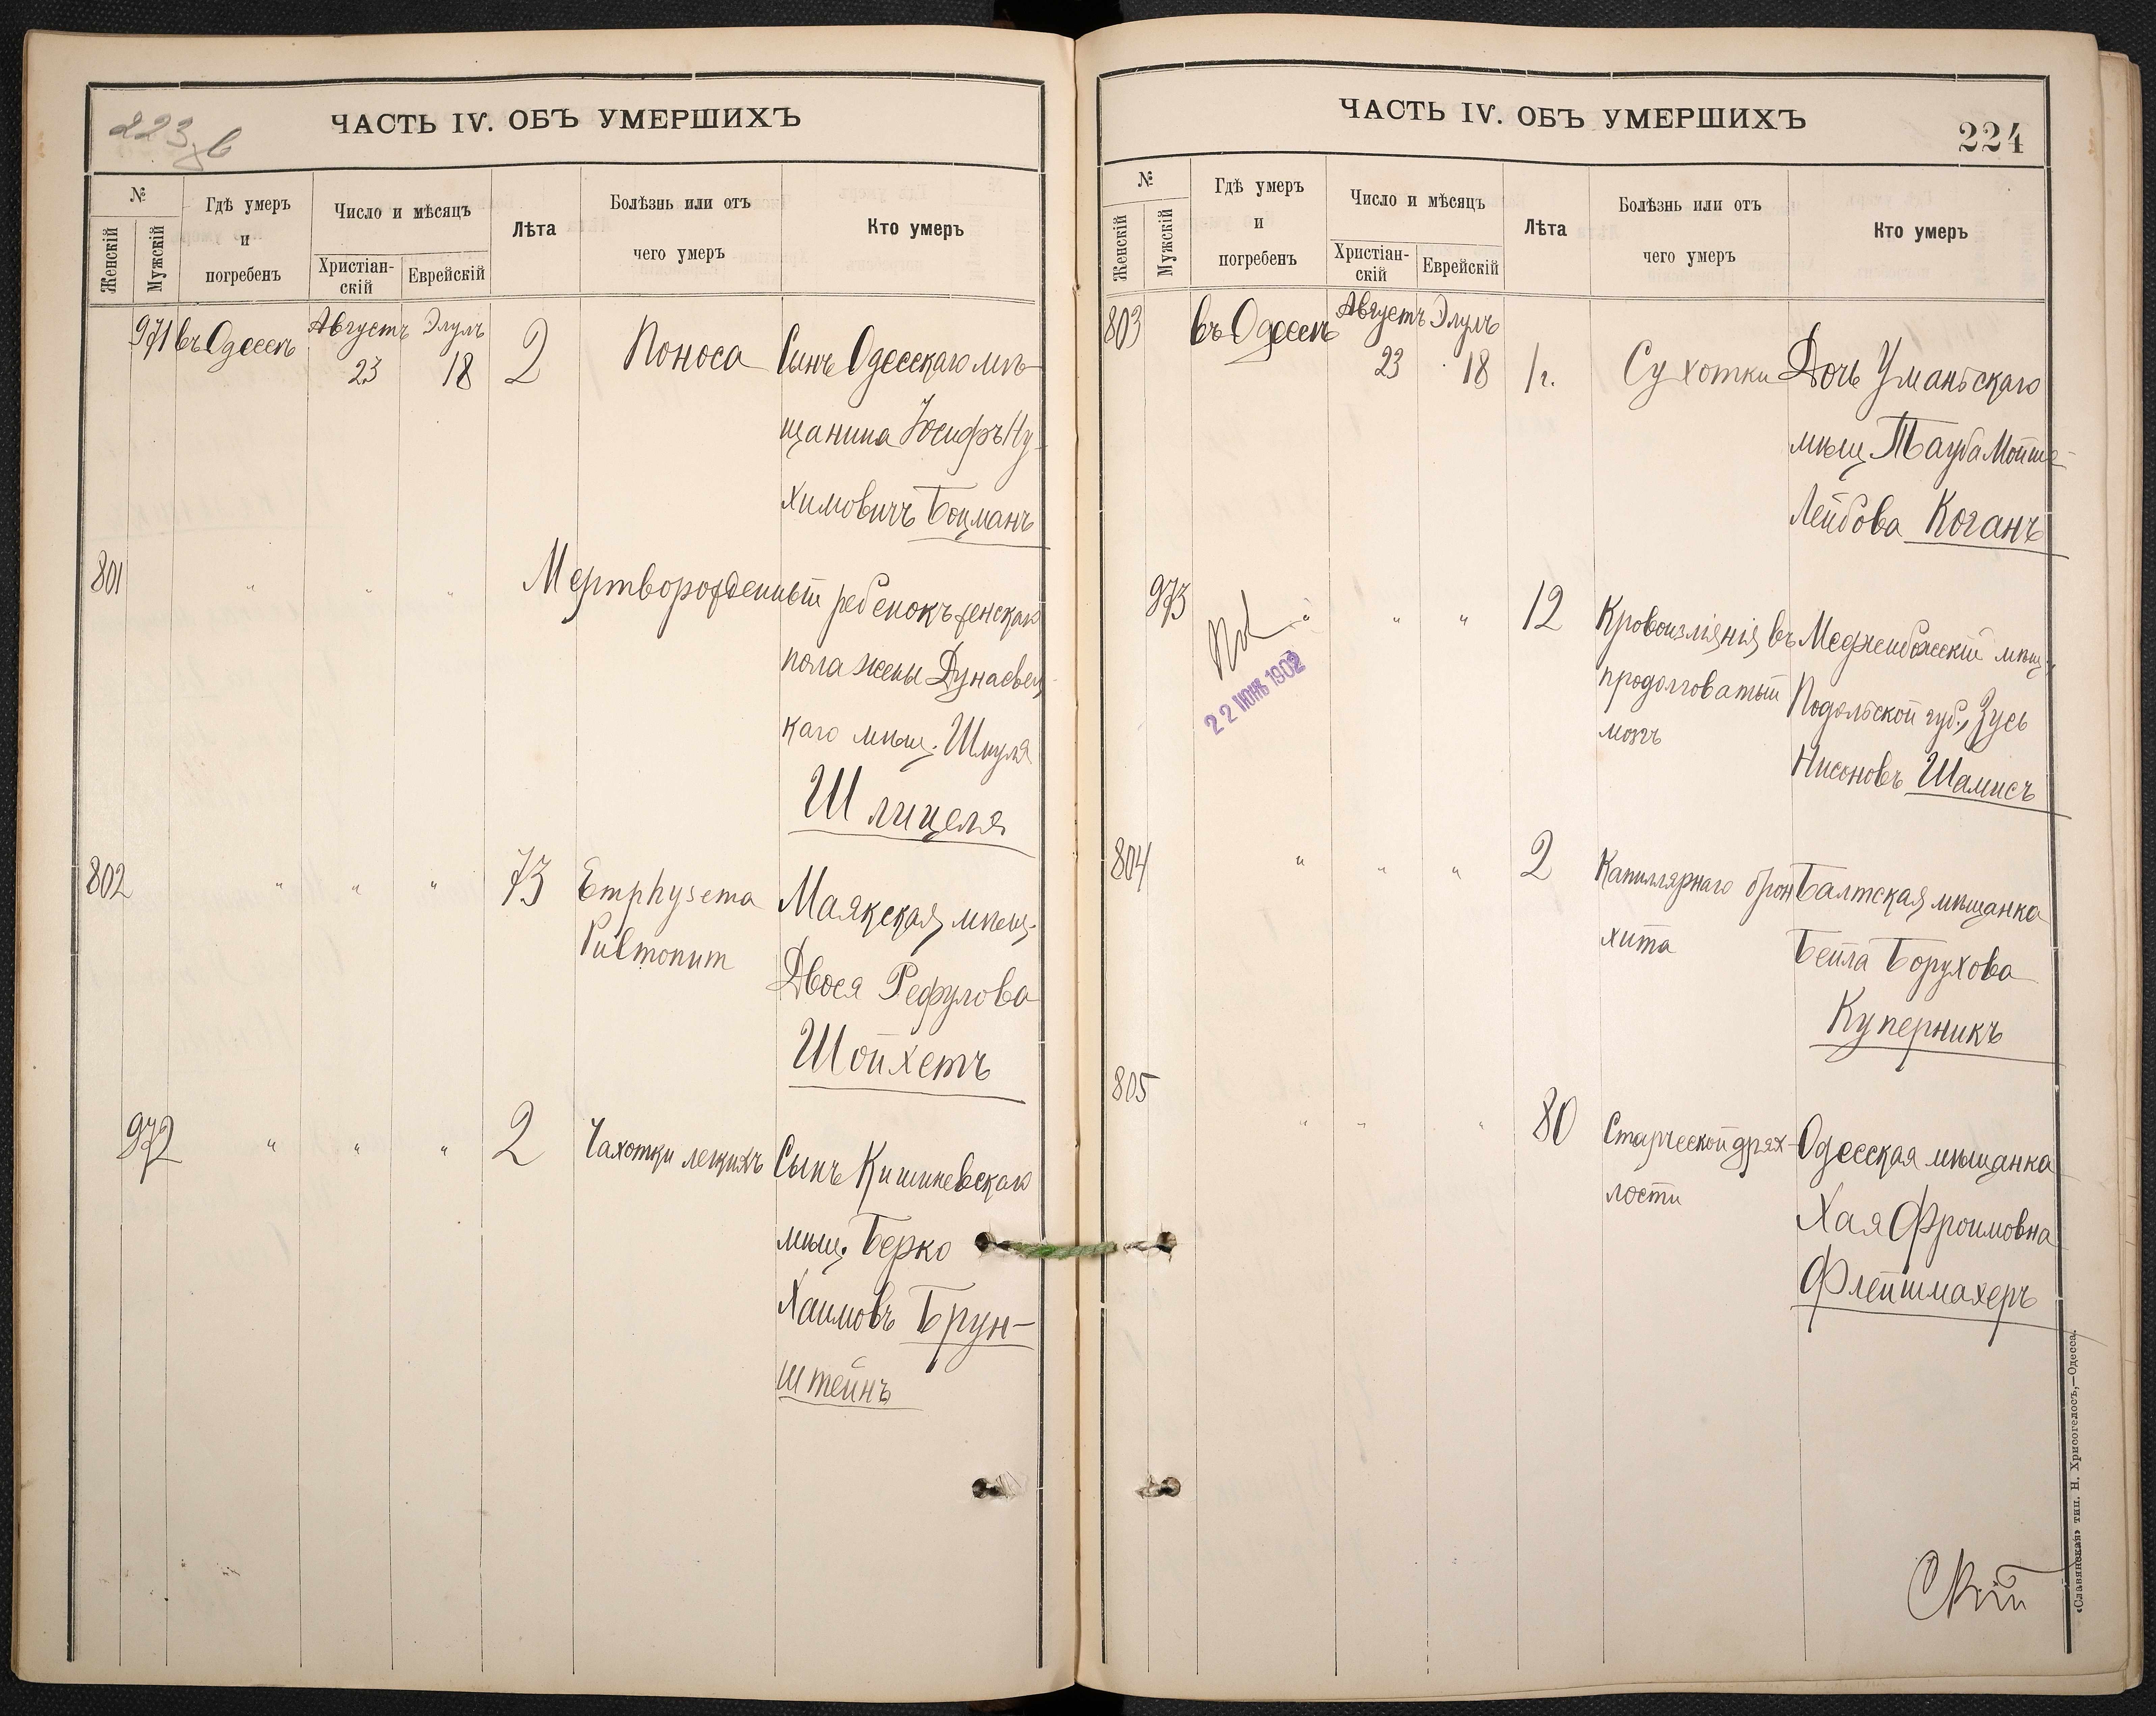 223 об
ЧАСТЬ IV. ОБЪ УМЕРШИХЪ
№
Женскій
Мужскій
Гдѣ умеръ
и
погребенъ
Число и мѣсяцъ
Христіан-
скій
Еврейскій
Лѣта
Болѣзнь или отъ
чего умеръ
Кто умеръ
971 въ Одессѣ Августъ 23 Элулъ 18 2 Поноса Сынъ Одесскаго мѣ-
щанина Іосифъ Ну-
химовичъ Боцманъ
801 " " " Мертворожденный ребенокъ женскаго
пола жены Дунаевец-
каго мѣщ. Шмуля
Шлицеля
802 " " " 73 Emphysema Маякская мѣщ.
Pulmonum Двося Рефулова
Шойхетъ
972 " " " 2 Чахотки легкихъ Сынъ Кишиневскаго
мѣщ. Берко
Хаимовъ Брун-
штейнъ
ЧАСТЬ IV. ОБЪ УМЕРШИХЪ
224
№
Женскій
Мужскій
Гдѣ умеръ
и
погребенъ
Число и мѣсяцъ
Христіан-
скій
Еврейскій
Лѣта
Болѣзнь или отъ
чего умеръ
Кто умеръ
803 въ Одессѣ Августъ 23 Элулъ 18 1 г. Сухотки Дочь Уманьскаго
мѣщ. Тауба Мойше-
Лейбова Коганъ
973 " " " 12 Кровоизліянія въ Меджибожскій мѣщ.,
22 ІЮНЬ 1902
продолговатый Подольской губ., Зусь
мозгъ Нисоновъ Шамисъ
804 " " " 2 Капиллярнаго брон Балтская мѣщанка
хита Бейла Борухова
Куперникъ
805 " " " 80 Старческой дрях- Одесская мѣщанка
лости Хая Фроимовна
Флейшмахеръ
«Славянская» тип. Н. Хрисогелосъ,—Одесса.